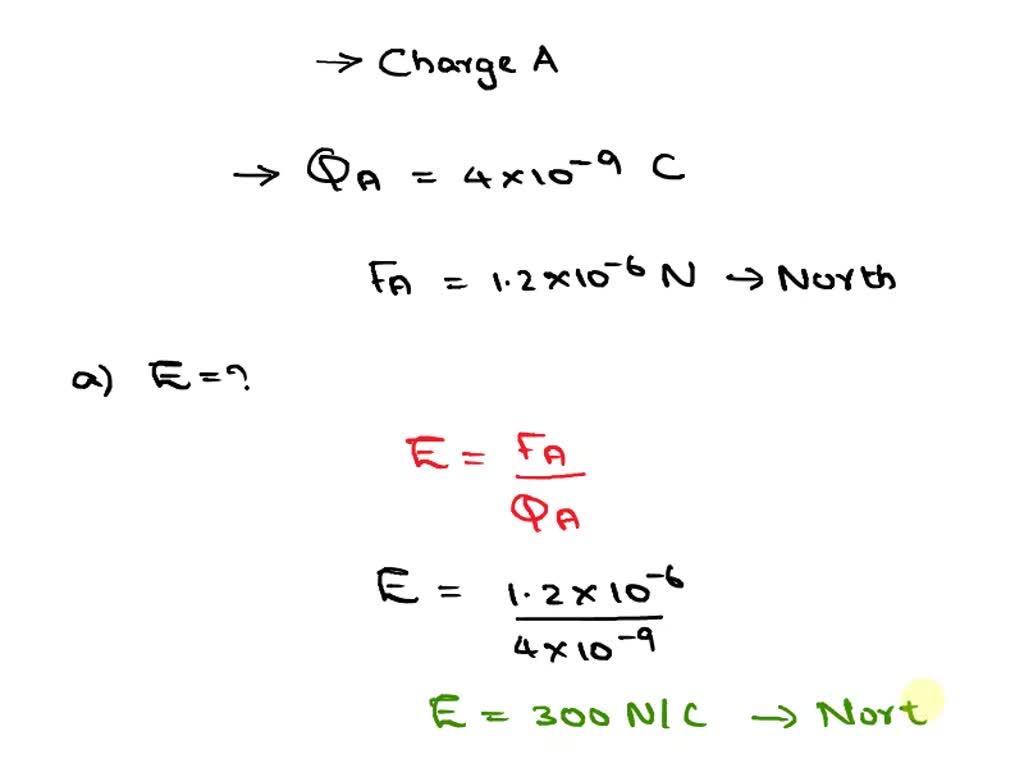 → Charge A
→ QA = 4×10⁻⁹ C
FA = 1.2×10⁻⁶ N → North
a) E = ?
E = FA
QA
E = 1.2×10⁻⁶
4×10⁻⁹
E = 300 N/C → Nort